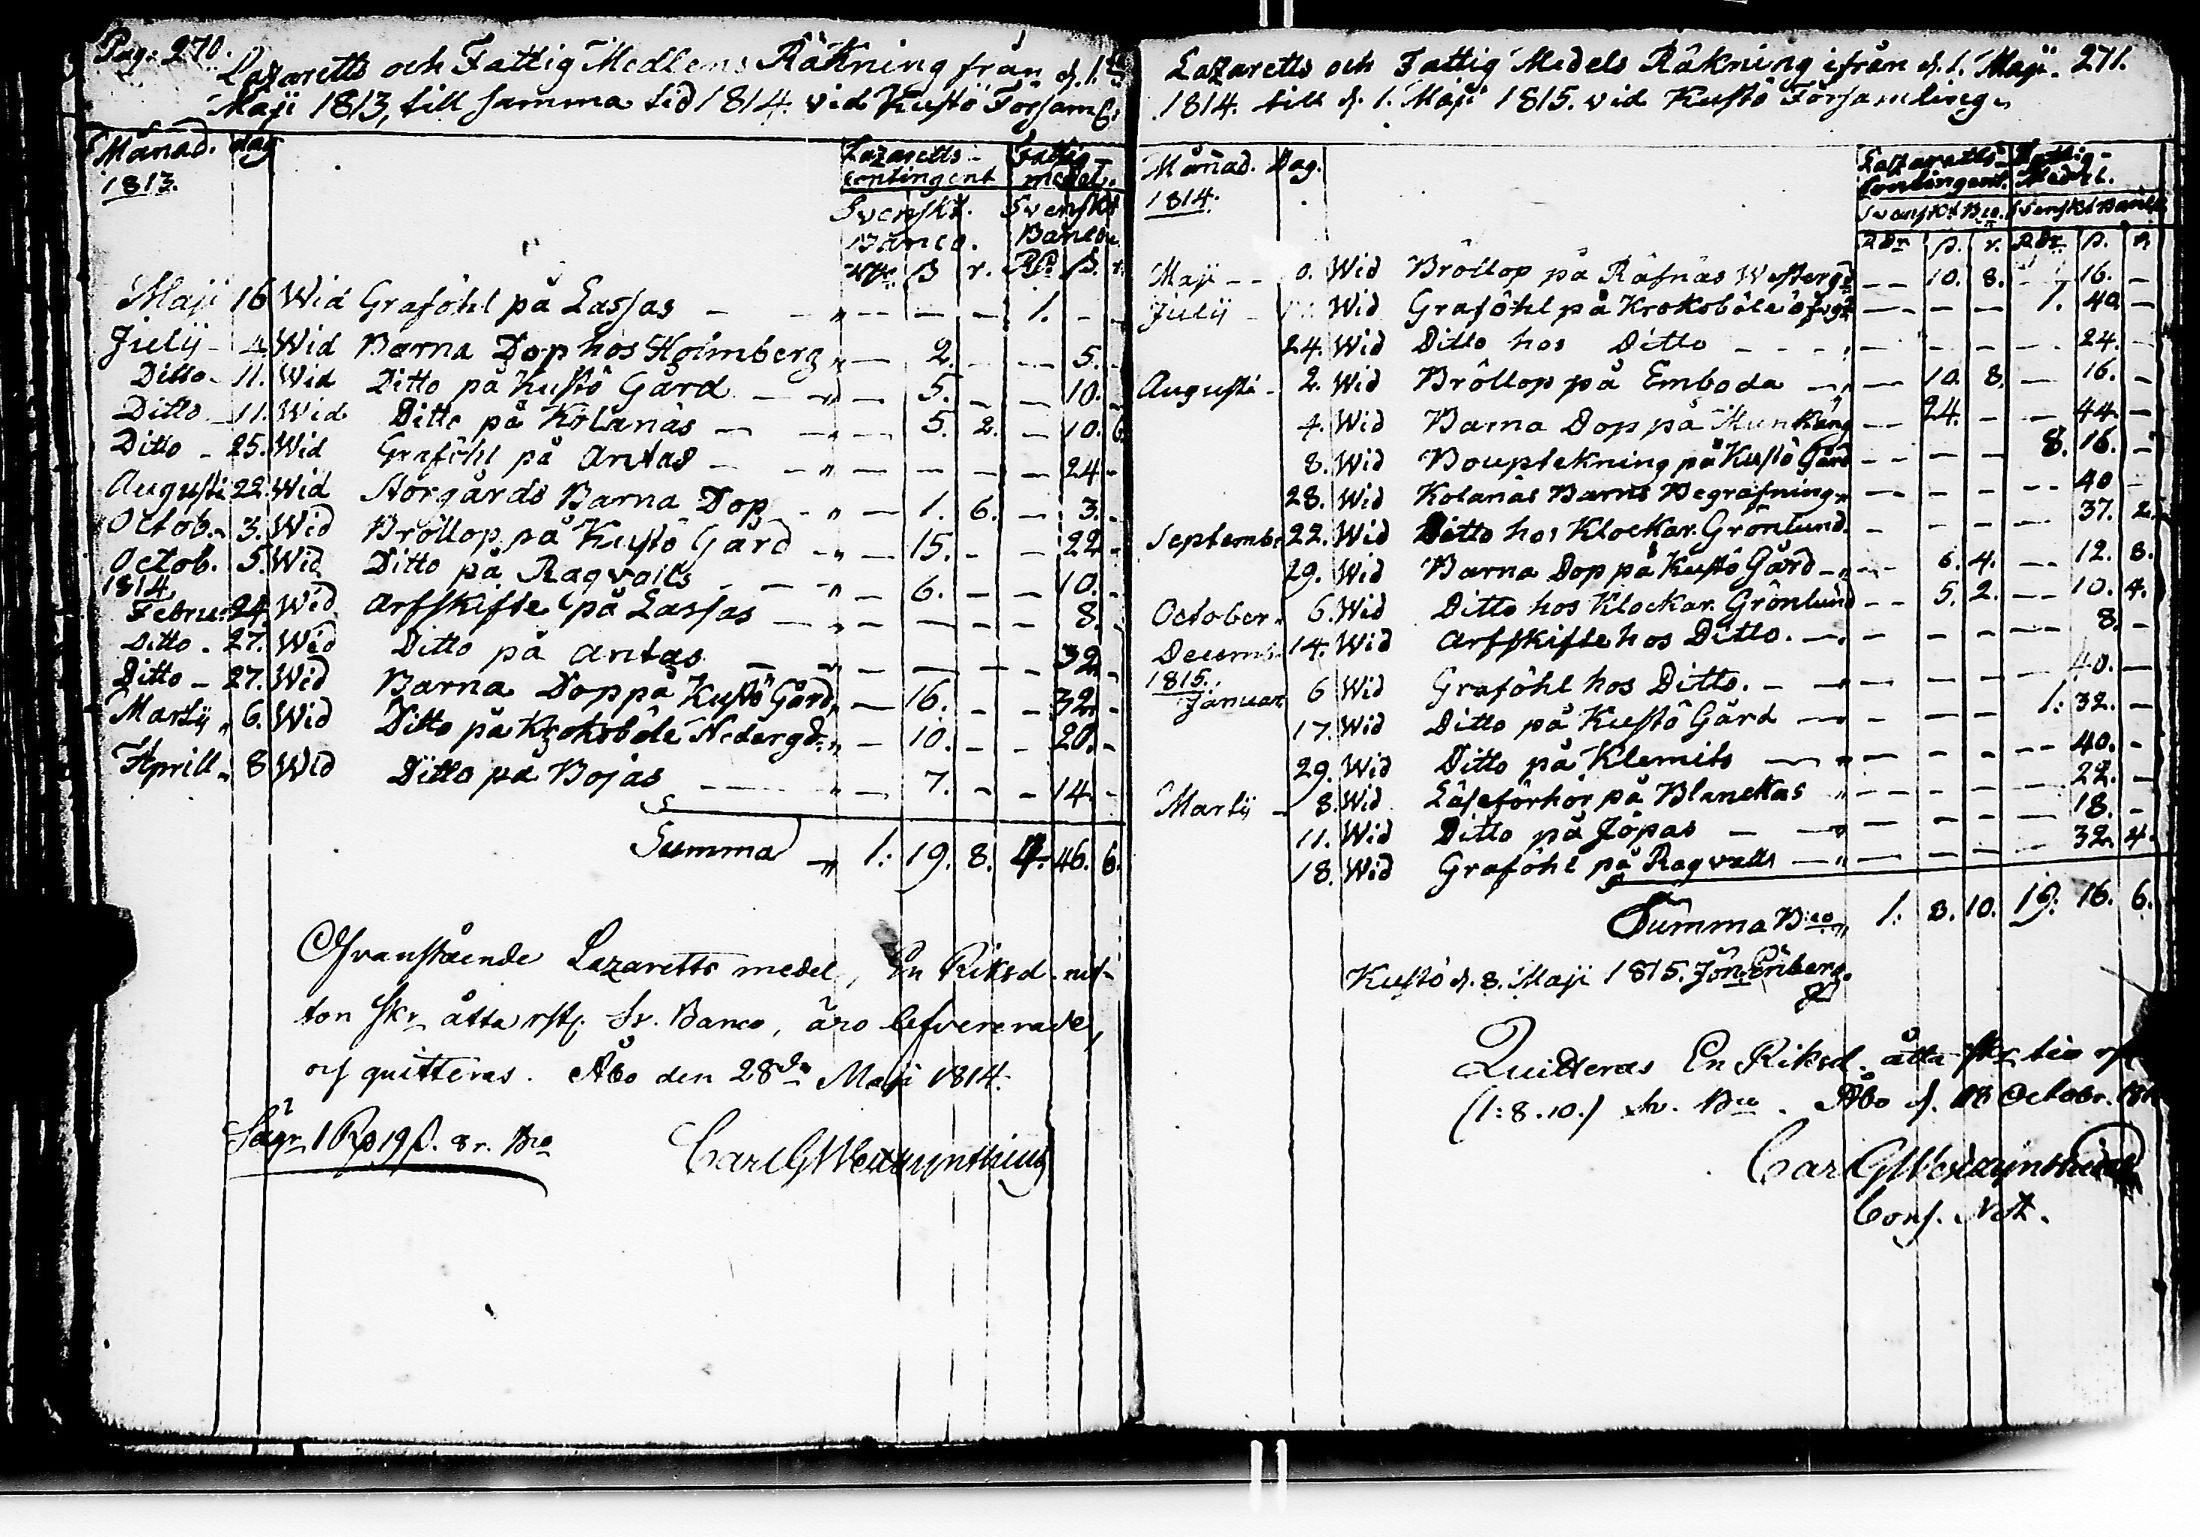 Pag: 270.
Lazaretts och Fattig Medlens Räkning från d. 1.
Maji 1813, till samma tid 1814. vid Kustö Församl:
Månad. dag Lazaretts- Fattig-
1813. Contingent medel.
Svenskt. Svenskt
Banco. Banco.
ß r. ß. r.
Maji 16 Wid Graföhl på Lassas — — — — 1. — -
Julij - 4. Wid Barna Dop hos Holmberg — 2. — — 5. -
Ditto - 11. Wid Ditto på Kustö Gård — 5. — — 10. -
Ditto - 11. Wid Ditto på Kolanäs — — 5. 2. — 10. 6
Ditto - 25. Wid Graföhl på Antas — — — — — 24 -
Augusti 22. Wid Storgårds Barna Dop — 1. 6. — 3. -
Octob. 3. Wid Bröllop på Kustö Gård — 15. - - 22 -
Octob. 5. Wid Ditto på Ragvalls — 6. — — 10. -
1814
Febru: 24 Wid Arfskifte på Lassas — — — — 8. -
Ditto - 27. Wid Ditto på Antas — — — — 32 -
Ditto - 27. Wid Barna Dop på Kustö Gård, — 16. - - 32 -
Martij 6. Wid Ditto på Krokoböle Nedergd. — 10. - - 20. -
Aprill 8 Wid Ditto på Bojas — 7. - - 14. -
Summa 1: 19. 8. 4. 46. 6.
Ofvanstående Lazaretts medel, En Riksd. nit-
ton skr åtta rst. Sv. Banco, äro lefvererade,
och quitteras. Åbo den 28de Maji 1814.
Säger 1 Rd 19 ß. 8 r. Bco
Carl G Westzynthius
Lazaretts och Fattig Medels Räkning ifrån d. 1. Maji. 271.
1814. till d. 1. Maji 1815. vid Kustö Församling.
Månad. Dag. Lazaretts- Fattig-
1814. Contingent. Medel.
Svenskt Bco. Svenskt Banco
Rdr ß. r. Rdr. ß. r
Maji - - Wid Bröllop på Räfnäs Westergd — 10. 8. - 16. -
Julij - Wid Graföhl på Krokoböle öfvgd — — — 1. 40. —
24. Wid Ditto hos Ditto - - - — — — — 24. —
Augusti - 2. Wid Bröllop på Emboda — — 10. 8. — 16. -
4. Wid Barna Dop på Munkäng — 24. - — 44. —
8. Wid Bouptekning på Kustö Gård - - - 8. 16. -
28. Wid Kolanäs Barns Begrafning — — - — 40 -
Septemb: 22. Wid Ditto hos Klockar. Grönlund. - - - - 37. 2.
29. Wid Barna Dop på Kustö Gård — 6. 4. — 12. 8.
October. 6. Wid Ditto hos Klockar. Grönlund - - 5. 2. — 10. 4.
Decemb. 14. Wid Arfskifte hos Ditto. — — — — 8. -
1815.
Januar 6 Wid Graföhl hos Ditto. - — — — 40. —
17. Wid Ditto på Kustö Gård — - - - 1: 32. —
29. Wid Ditto på Klemits — — — — — 40. -
Martij - 8. Wid Läseförhör på Blanckas - - - - 22. -
11. Wid Ditto på Jöpas — — — — — 18. -
18. Wid Graföhl på Ragvalls — — — — 32. 4.
Summa Bco 1: 8. 10. 19. 16. 6.
Kustö d. 8. Maji 1815. Jon Enberg.
Quitteras En Riksd. åtta skr tio rst
(1: 8. 10.) Sv. Bco. Åbo d. 18 Octobr.
Carl G Westzynthius
Cons. Not.